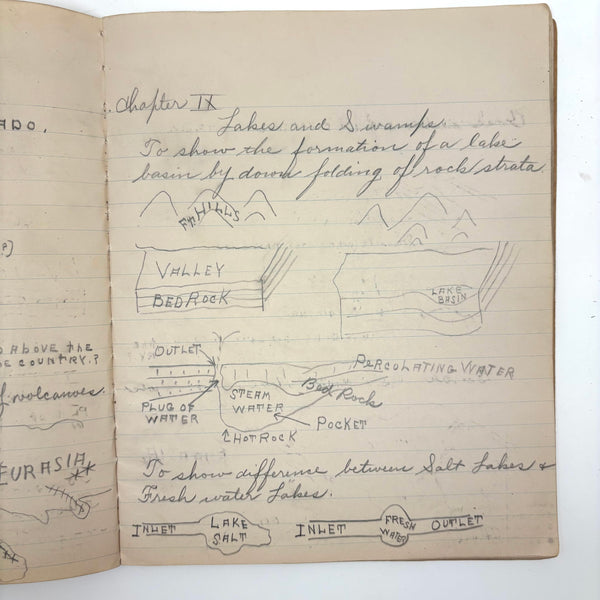 ADO.
Chapter IX
Lakes and Swamps.
To show the formation of a lake
basin by down folding of rock strata
Ft. HILLS
VALLEY
BEDROCK
LAKE
BASIN
OUTLET
PERCOLATING WATER
ABOVE the
COUNTRY?
STEAM
WATER
Bed Rock
of volcanoes.
PLUG OF
WATER
POCKET
HOT ROCK
EURASIA
To show difference between Salt Lakes &
Fresh water Lakes.
INLET LAKE
SALT
INLET FRESH
WATER OUTLET